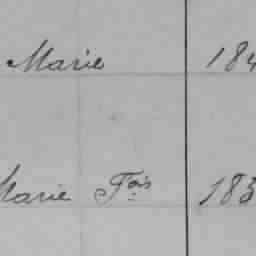 Marie 184
Marie Fois 183